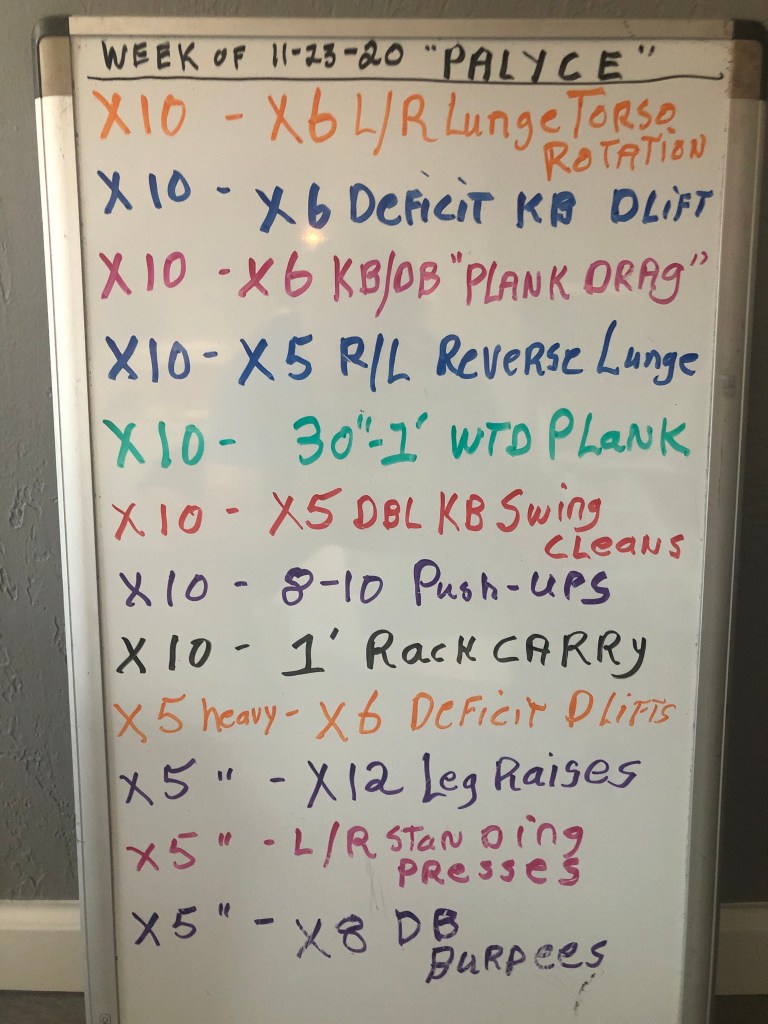 WEEK OF 11-23-20 "PALYCE"
X10 - X6 L/R Lunge TORSO
ROTATION
X10 - X6 DEFICIT KB DLIFT
X10 - X6 KB/DB "PLANK DRAG"
X10 - X5 R/L REVERSE Lunge
X10 - 30"-1' WTD PLANK
X10 - X5 DBL KB Swing
CLEANS
X10 - 8-10 Push-UPS
X10 - 1' Rack CARRY
X5 heavy - X6 DEFICIT DLIFTS
X5 " - X12 Leg Raises
X5 " - L/R STANDing
PRESSES
X5 " - X8 DB
BURPEES